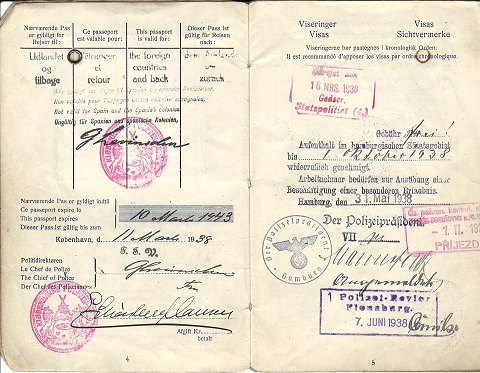 Nærværende Pas
er gyldigt for
Rejser til:
Ce passeport
est valable pour:
This passport
is valid for:
Dieser Pass ist
gültig für Reisen
nach:
Udlandet
og
tilbage
l'étranger
et
retour
the foreign
countries
and back
dem Auslande
u.
zurück
Not valid for Spain and the Spanish colonies.
Ungültig für Spanien und spanische Kolonien.
Nærværende Pas udløber
Ce passeport expire le
This passport expires
Dieser Pass ist gültig bis zu
10 Marts 1943
København, den 11 Marts 1938
Politidirektøren
Le Chef de Police
The Chief of Police
Der Chef des Polizeiamtes
Afgift Kr.
betalt
4
Viseringer
Visas
Visas
Sichtvermerke
Viseringerne bør paategnes i kronologisk Orden.
Il est recommandé d'apposer les visas par ordre chronologique.
16 MRS. 1938
Statspolitiet
Gebühr frei!
Aufenthalt im hamburgischen Staatsgebiet
bis 1. Oktober 1938
widerruflich genehmigt.
Arbeitnehmer bedürfen zur Ausübung einer
Beschäftigung einer besonderen Erlaubnis.
Hamburg, den 31. Mai 1938
Der Polizeipräsident
VII
Der Polizeipräsident
Hamburg
PŘÍJEZD
Angemeldet
1 Polizei-Revier
Flensburg.
7. JUNI 1938
5